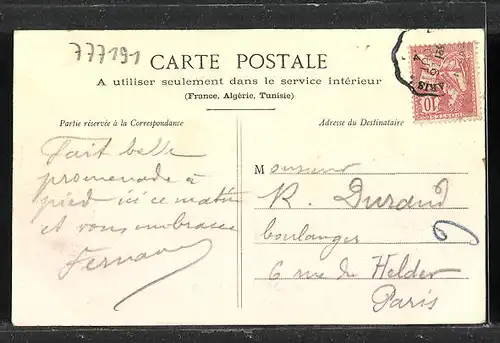 777191
CARTE POSTALE
A utiliser seulement dans le service intérieur
(France, Algérie, Tunisie)
Partie réservée à la Correspondance
Adresse du Destinataire
Fait belle
promenade à
pied ici ce matin
et vous embrasse
Fernand
Monsieur
R. Durand
boulanger
6 rue du Helder
Paris
10